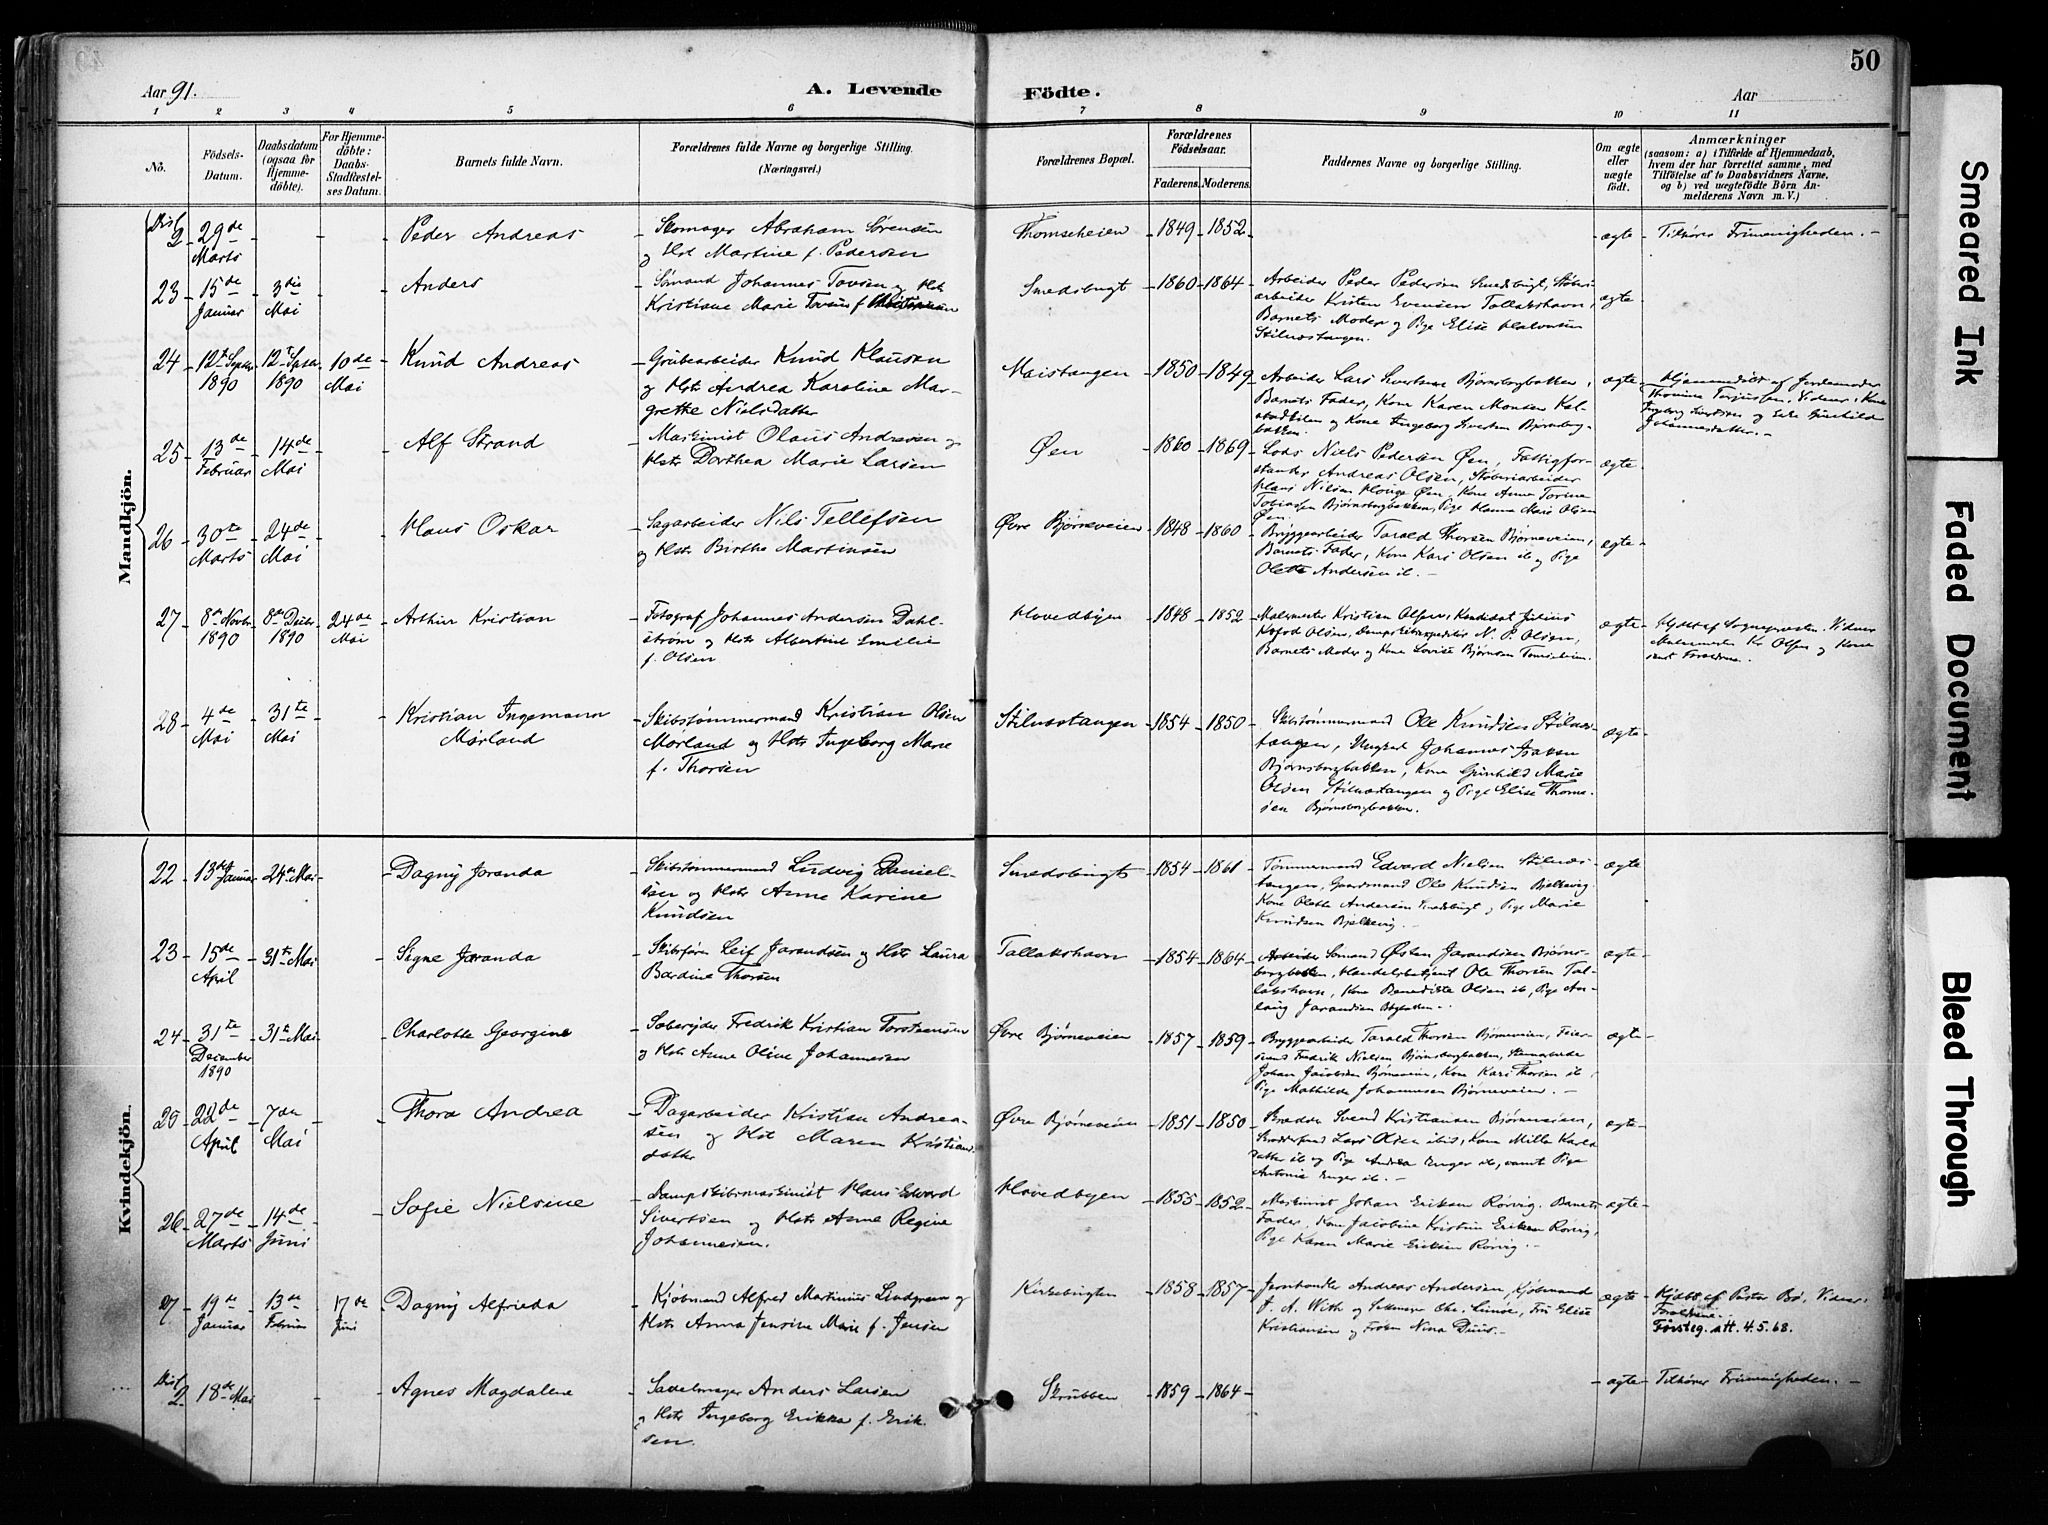 50
Aar 91.
A. Levende
Födte.
Aar
1 2 3 4 5 6 7 8 9 10 11
No.
Födsels-Datum.
Daabsdatum (ogsaa for Hjemme-döbte).
For Hjemme-döbte: Daabs-Stadfæstel-ses Datum.
Barnets fulde Navn.
Forældrenes fulde Navne og borgerlige Stilling.
(Næringsvei.)
Forældrenes Bopæl.
Forældrenes Födselsaar.
Faderens. Moderens.
Faddernes Navne og borgerlige Stilling.
Om ægte eller uægte födt.
Anmærkninger
(saasom: a) i Tilfælde af Hjemmedaab, hvem der har forrettet samme, med Tilföielse af to Daabsvidners Navne, og b) ved uægtefödte Börn Anmelderens Navn m. V.)
Mandkjön.
2 29de Marts Peder Andreas Skomager Abraham Sørensen
og Hst Martine f. Pedersen Thomseheien 1849 1852 ægte Tilhører Frimenigheden.
23 15de Januar 3die Mai Anders Sømand Johannes Tovsen og Hst
Kristiane Marie Smedsbugt 1860 1864 Arbeider Peder Pedersen Smedsbugt,
arbeider Kristen Evensen Tallakshavn,
Barnets Moder og Pige Elise Halvorsen ægte
24 12te Septbr 1890 12te Septbr 1890 10de Mai Knud Andreas Grubearbeider Knud Klausen
og Hst Andrea Karoline Mar-
grethe Nielsdatter Maistangen 1850 1849 Arbeider Lars Bjørnsborgbakken,
Barnets Fader, Kone Karen Monsen
og Kone Ingeborg ægte Hjemmedøbt af Jordemoder
Johannesdatter.
25 13de Februar 14de Mai Alf Strand Maskinist Olaus Andresen og
Hst Dorthea Marie Larsen Øen 1860 1869 Lods Niels Pedersen Øen, Fattigfor-
stander Andreas Olsen, Støberiarbeider
Hans Nilsen Øen, Kone Anne Torine
Tobiassen Bjørnsborgbakken, Pige Hanna Marie Olsen
Øen. ægte
26 30te Marts 24de Mai Hans Oskar Sagarbeider Nils Tellefsen
og Hst Birthe Martinsen Øvre Bjørneveien 1848 1860 Bryggearbeider Tarald Thorsen Bjørneveien,
Barnets Fader, Kone Kari Olsen ib og Pige
Olette Andersen ib. ægte
27 8de Novbr 1890 8de Decbr 1890 24de Mai Arthur Kristian Fotograf Johannes Andersen Dahl-
strøm og Hst Albertine Emilie
f. Olsen Hovedbyen 1848 1852 Malermester Kristian Olsen, Kandidat Julius
Olsen, Dampskibsexpeditør N. P. Olsen,
Barnets Moder og Kone Lovise Bjørnsen ægte Hjdbt af Sognepresten. Vidner
Malermester Kr Olsen og Kone
samt Forældrene.
28 4de Mai 31te Mai Kristian Ingemann
Mørland Skibstømmermand Kristian Olsen
Mørland og Hst Ingeborg Marie
f. Thorsen Stilnestangen 1854 1850 Skibstømmermand Ole Knudsen Stilnes-
tangen, Ungkarl Johannes Isaksen
Bjørnsborgbakken, Kone Gunhild Marie
Olsen Stilnestangen og Pige Elise Thom-
sen Bjørnsborgbakken. ægte
Kvindekjön.
22 13de Januar 24de Mai Dagny Joranda Skibstømmermand Ludvig Daniel-
sen og Hst Anne Karine
Knudsen Smedsbugt 1854 1861 Tømmermand Edvard Nielsen Stilnes-
tangen, Gaardmand Ole Knudsen Bjelkevig.
Kone Olette Andersen Smedsbugt og Pige Marie
Knudsen Bjelkevig. ægte
23 15de April 31te Mai Signe Joranda Skibsfører Leif Jorandsen og Hst Laura
Bardine Thorsen Tallakshavn 1854 1864 Sømand Østen Jorandsen Bjørns-
borgbakken, Handelsbetjent Ole Thorsen Tal-
lakshavn, Kone Benedikte Olsen ib, Pige As-
laug Jorandsen ægte
24 31te December 1890 31te Mai Charlotte Georgine Fredrik Kristian Torstensen
og Hst Anne Oline Johannesen Øvre Bjørneveien 1857 1859 Bryggearbeider Tarald Thorsen Bjørneveien, Feier-
svend Fredrik Nielsen Bjørnsborgbakken,
Johan Jacobsen Bjørneveien, Kone Kari Thorsen ib,
Pige Mathilde Johannesen Bjørneveien. ægte
25 22de April 7de Mai Thora Andrea Dagarbeider Kristian Andrea-
sen og Hst Maren Kristians-
datter Øvre Bjørneveien 1851 1850 Svend Kristiansen Bjørneveien,
Lars Olsen ibid, Kone Mille Karls-
datter ib og Pige Andrea Unger ib, samt Pige
Antonie Unger ib. ægte
26 27de Marts 14de Juni Sofie Nielsine Dampskibsmaskinist Hans Edvard
Sivertsen og Hst Anne Regine
Johannesen. Hovedbyen 1855 1852 Maskinist Johan Eriksen Rørvig, Barnets
Fader, Kone Jacobine Kristine Eriksen Rørvig,
Pige Karen Marie Eriksen Rørvig. ægte
27 19de Januar 13de Februar 17de Juni Dagny Alfrieda Kjøbmand Alfred Martinius Lindgreen og
Hst Anna Jensine Marie f. Jensen Kirkebugten 1858 1857 Jernhandler Andreas Andersen, Kjøbmand
J. A. With og Chr. Fru Elise
Kristiansen og Frøken Nina Duus. ægte Hjdøbt af Pastor Bø, Vidner
Forældrene.
Førsteg. att. 4.5.68.
2 18de Mai Agnes Magdalene Sadelmager Anders Larsen
og Hst Ingeborg Erikka f. Erik-
sen. Skrubben 1859 1864 ægte Tilhører Frimenigheden.
Smeared Ink
Faded Document
Bleed Through